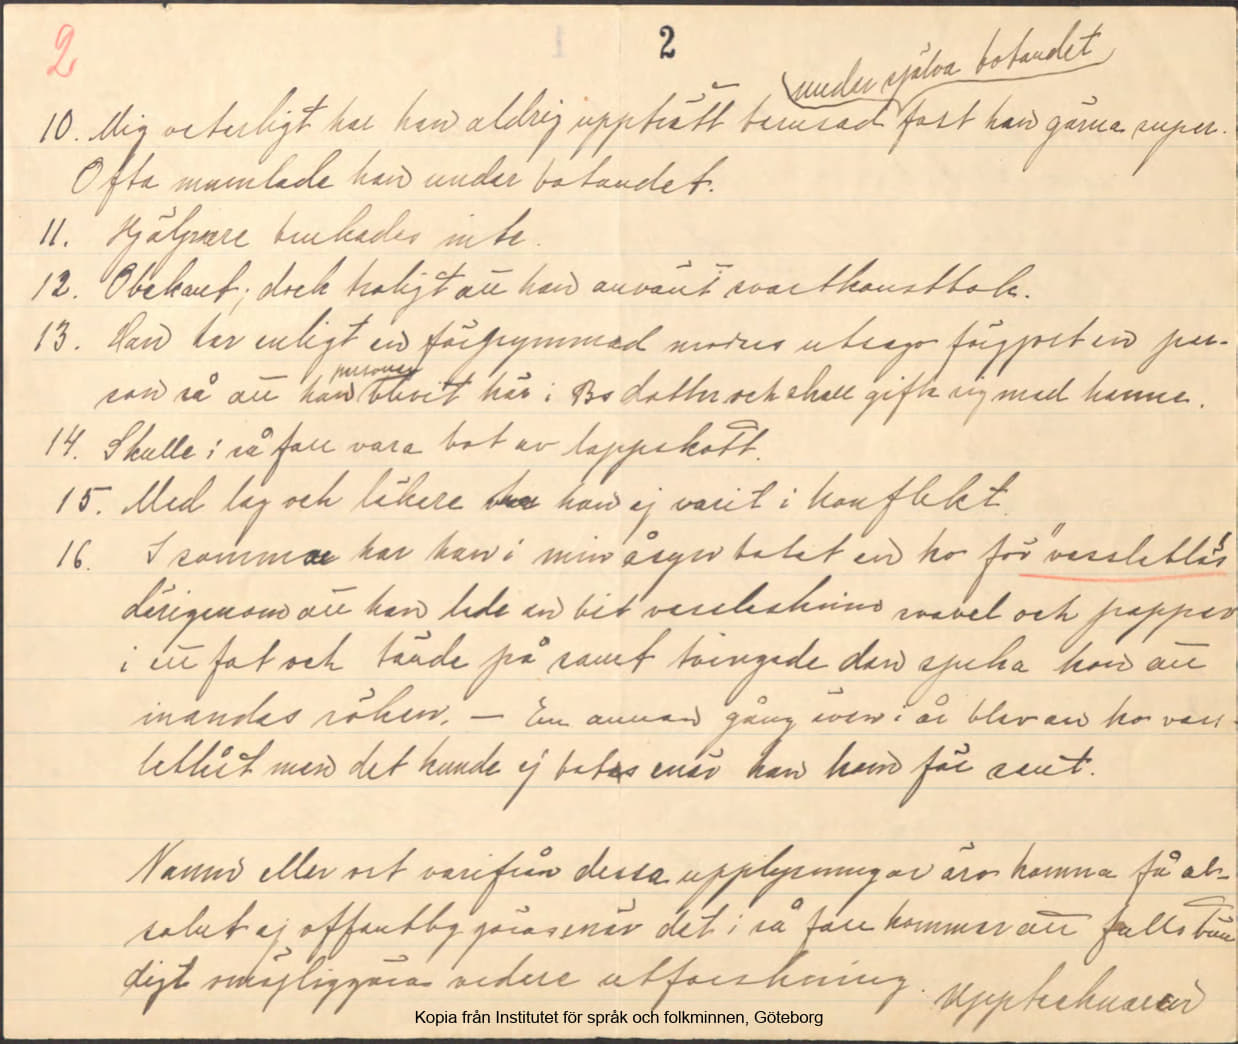 2
2
under själva botandet
10. Mig veterligt har han aldrig uppträtt berusad fast han gärna super.
Ofta mumlade han under botandet.
11. Hjälpare brukades inte.
12. Obekant; dock troligt att han använt svartkonstbok.
13. Han har enligt en förgrymmad moders utsago förgjort en per-
personen
son så att han blivit kär i Bs dotter och skall gifta sig med henne.
14. Skulle i så fall vara bot av lappskott.
15. Med lag och läkare har han ej varit i konflikt.
16. I sommar har han i min åsyn botat en ko för "vessleblås"
därigenom att han lade en bit vesselskinn svavel och papper
i ett fat och tände på samt tvingade den sjuka kon att
inandas röken. — En annan gång även i år blev en ko vess-
leblåst men det kunde ej botas enär han kom för sent.
Namn eller ort varifrån dessa upplysningar äro komna få ab-
solut ej offentlig göras enär det i så fall kommer att fullstän
digt omöjliggöra vidare utforskning.
Upptecknaren
Kopia från Institutet för språk och folkminnen, Göteborg